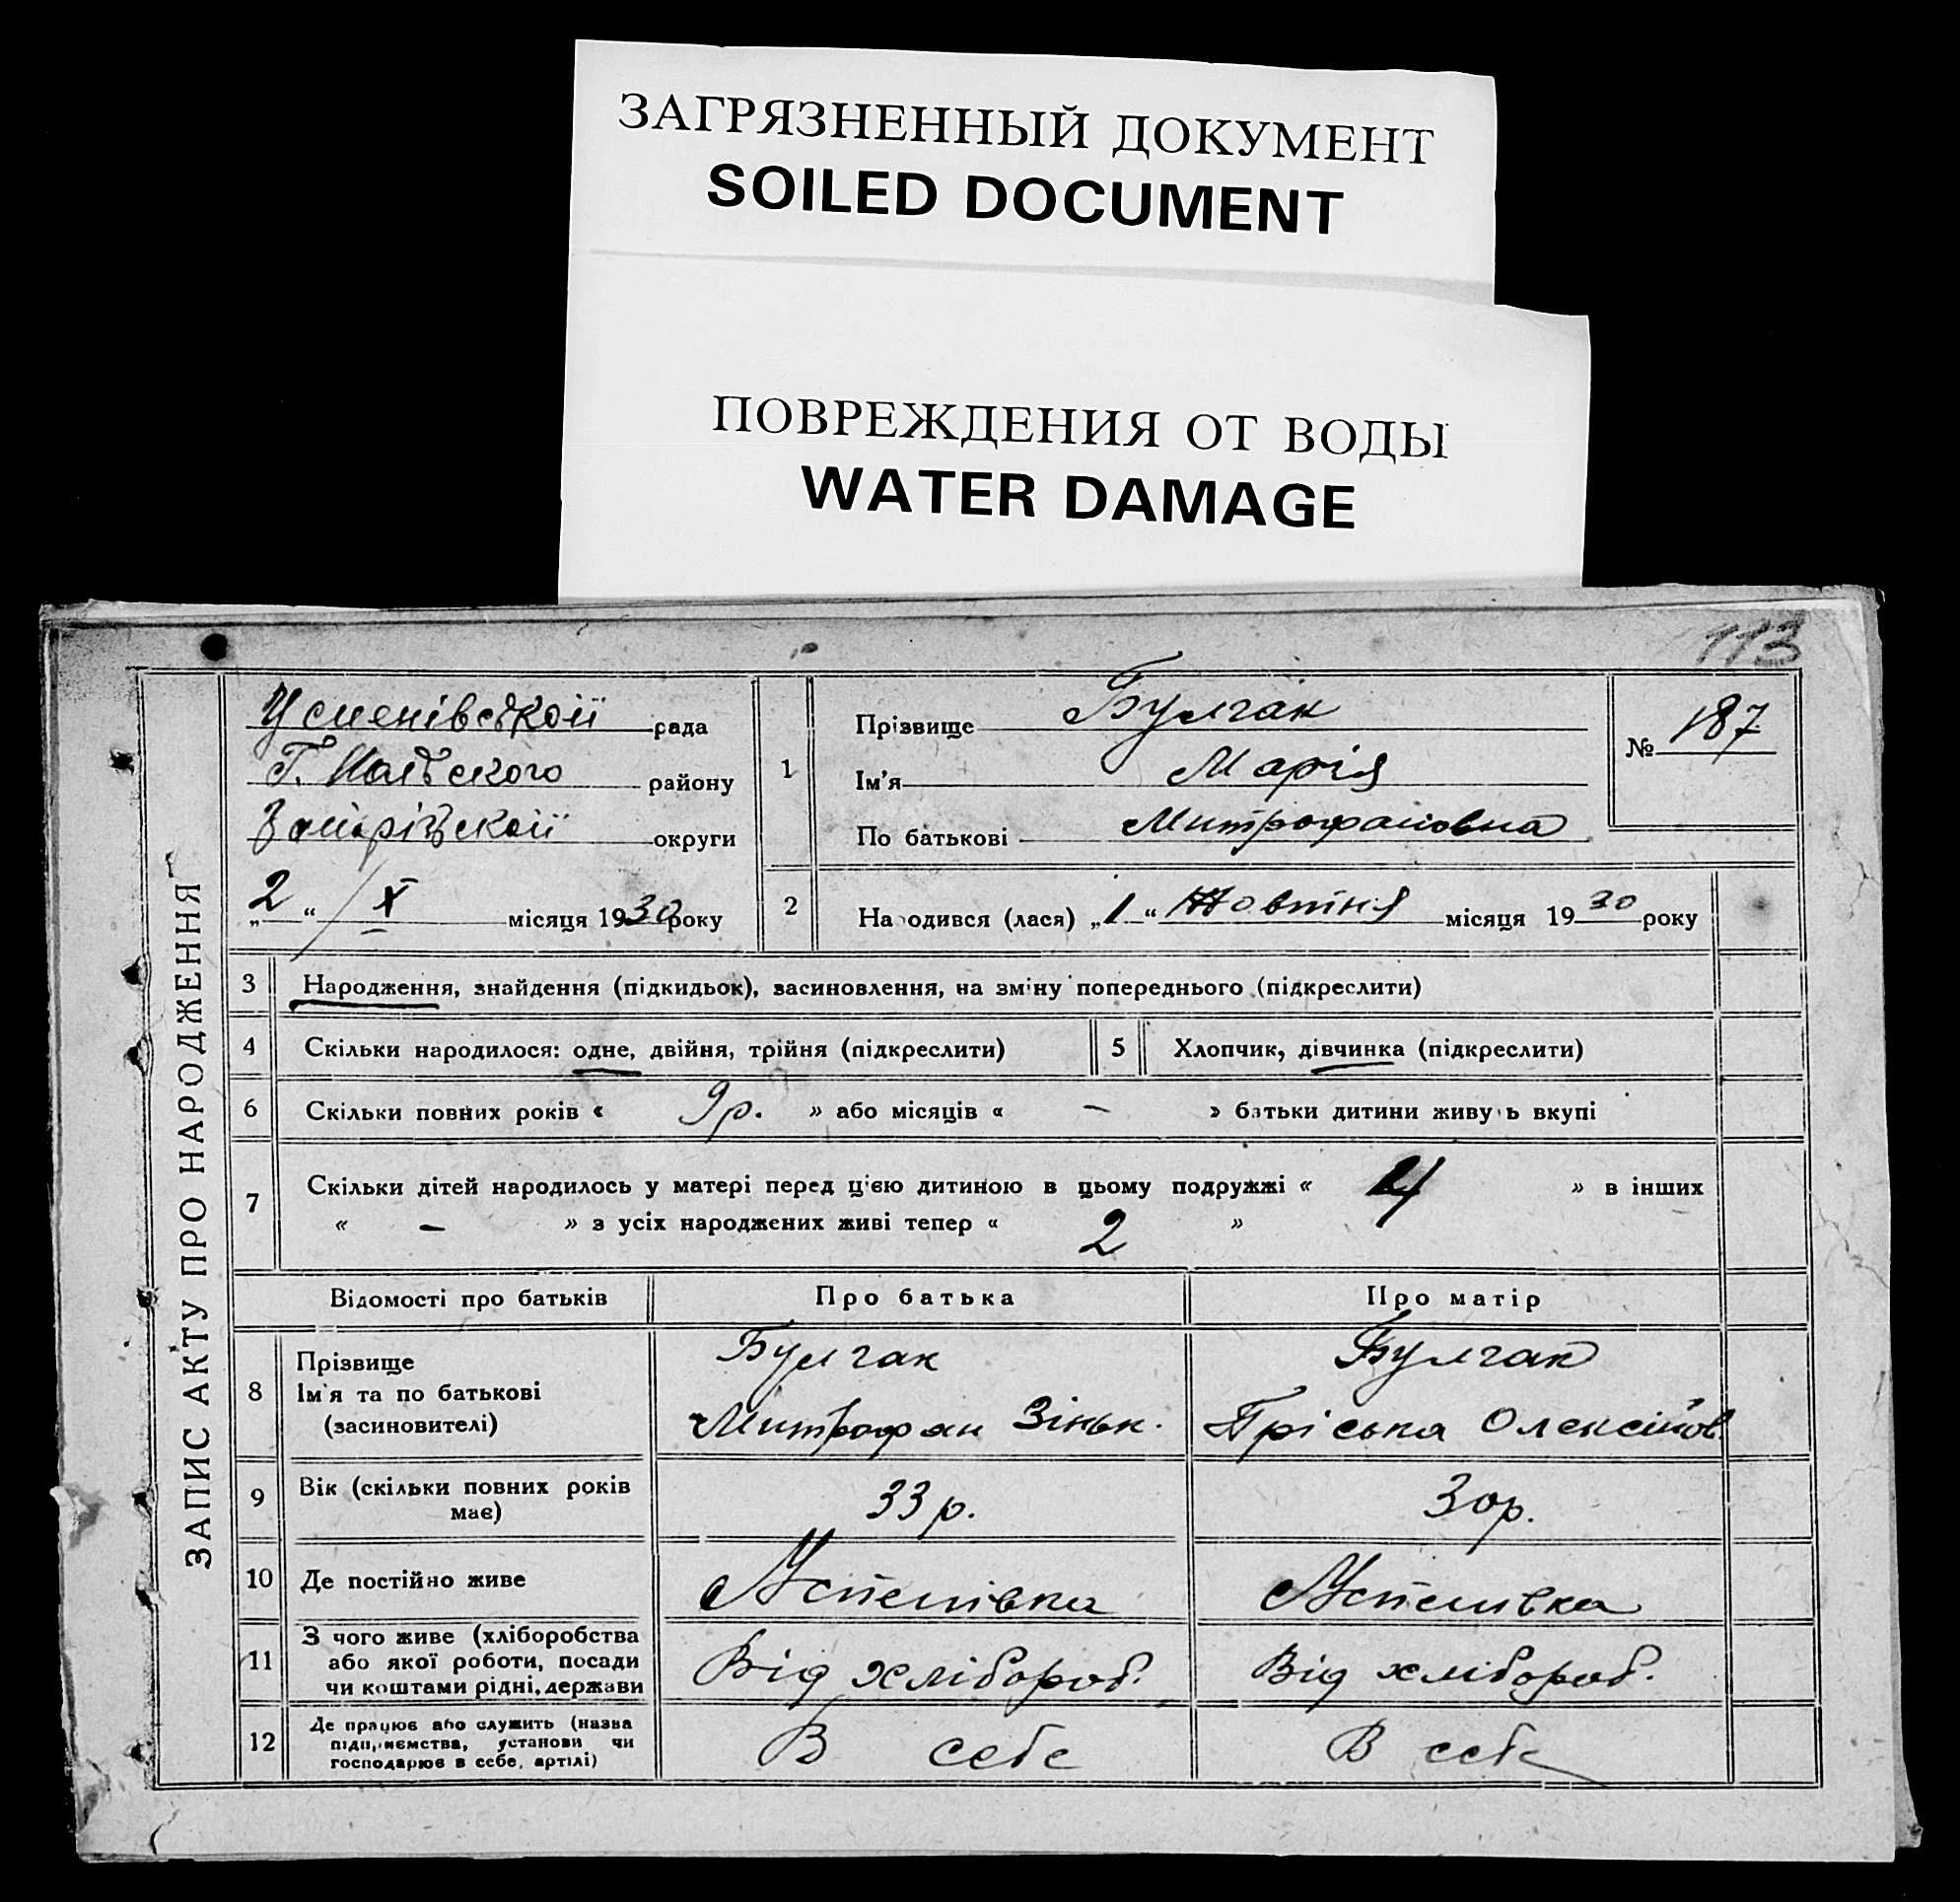 ЗАГРЯЗНЕННЫЙ ДОКУМЕНТ
SOILED DOCUMENT
ПОВРЕЖДЕНИЯ ОТ ВОДЫ
WATER DAMAGE
113
ЗАПИС АКТУ ПРО НАРОДЖЕННЯ
Успенівської рада
району
округи
„2“ / X місяця 1930 року
1
Прізвище Булгак
Ім'я Марія
По батькові Митрофановна
№ 187
2 Народився (лася) „1“ Жовтня місяця 1930 року
3 Народження, знайдення (підкидьок), засиновлення, на зміну попереднього (підкреслити)
4 Скільки народилося: одне, двійня, трійня (підкреслити)
5 Хлопчик, дівчинка (підкреслити)
6 Скільки повних років « 9р. » або місяців « – » батьки дитини живуть вкупі
7 Скільки дітей народилось у матері перед цією дитиною в цьому подружжі « 4 » в інших
« – » з усіх народжених живі тепер « 2 »
Відомості про батьків Про батька Про матір
8 Прізвище Булгак Булгак
Ім'я та по батькові Митрофан Зіньк. Пріська Олексійов.
(засиновителі)
9 Вік (скільки повних років має) 33 р. 30 р.
10 Де постійно живе Успенівка Успенивка
11 З чого живе (хліборобства
або якої роботи, посади Від хлібороб. Від хлібороб.
чи коштами рідні, держави
12 Де працює або служить (назва
підприємства, установи чи В себе В себе
господарює в себе, артілі)